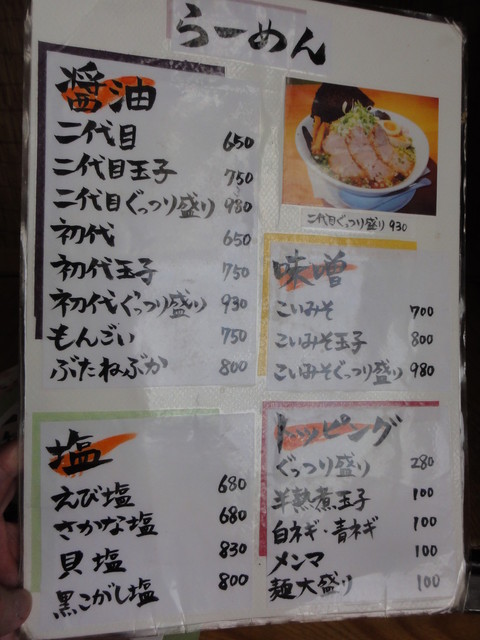 らーめん
醤油
二代目 650
二代目玉子 750
二代目ぐっつり盛り 930
初代 650
初代玉子 750
初代ぐっつり盛り 930
もんごい 750
ぶたねぶか 800
二代目ぐっつり盛り 930
味噌
こいみそ 700
こいみそ玉子 800
こいみそぐっつり盛り 980
塩
えび塩 680
さかな塩 680
貝塩 830
黒こがし塩 800
トッピング
ぐっつり盛り 280
半熟煮玉子 100
白ネギ・青ネギ 100
メンマ 100
麺大盛り 100